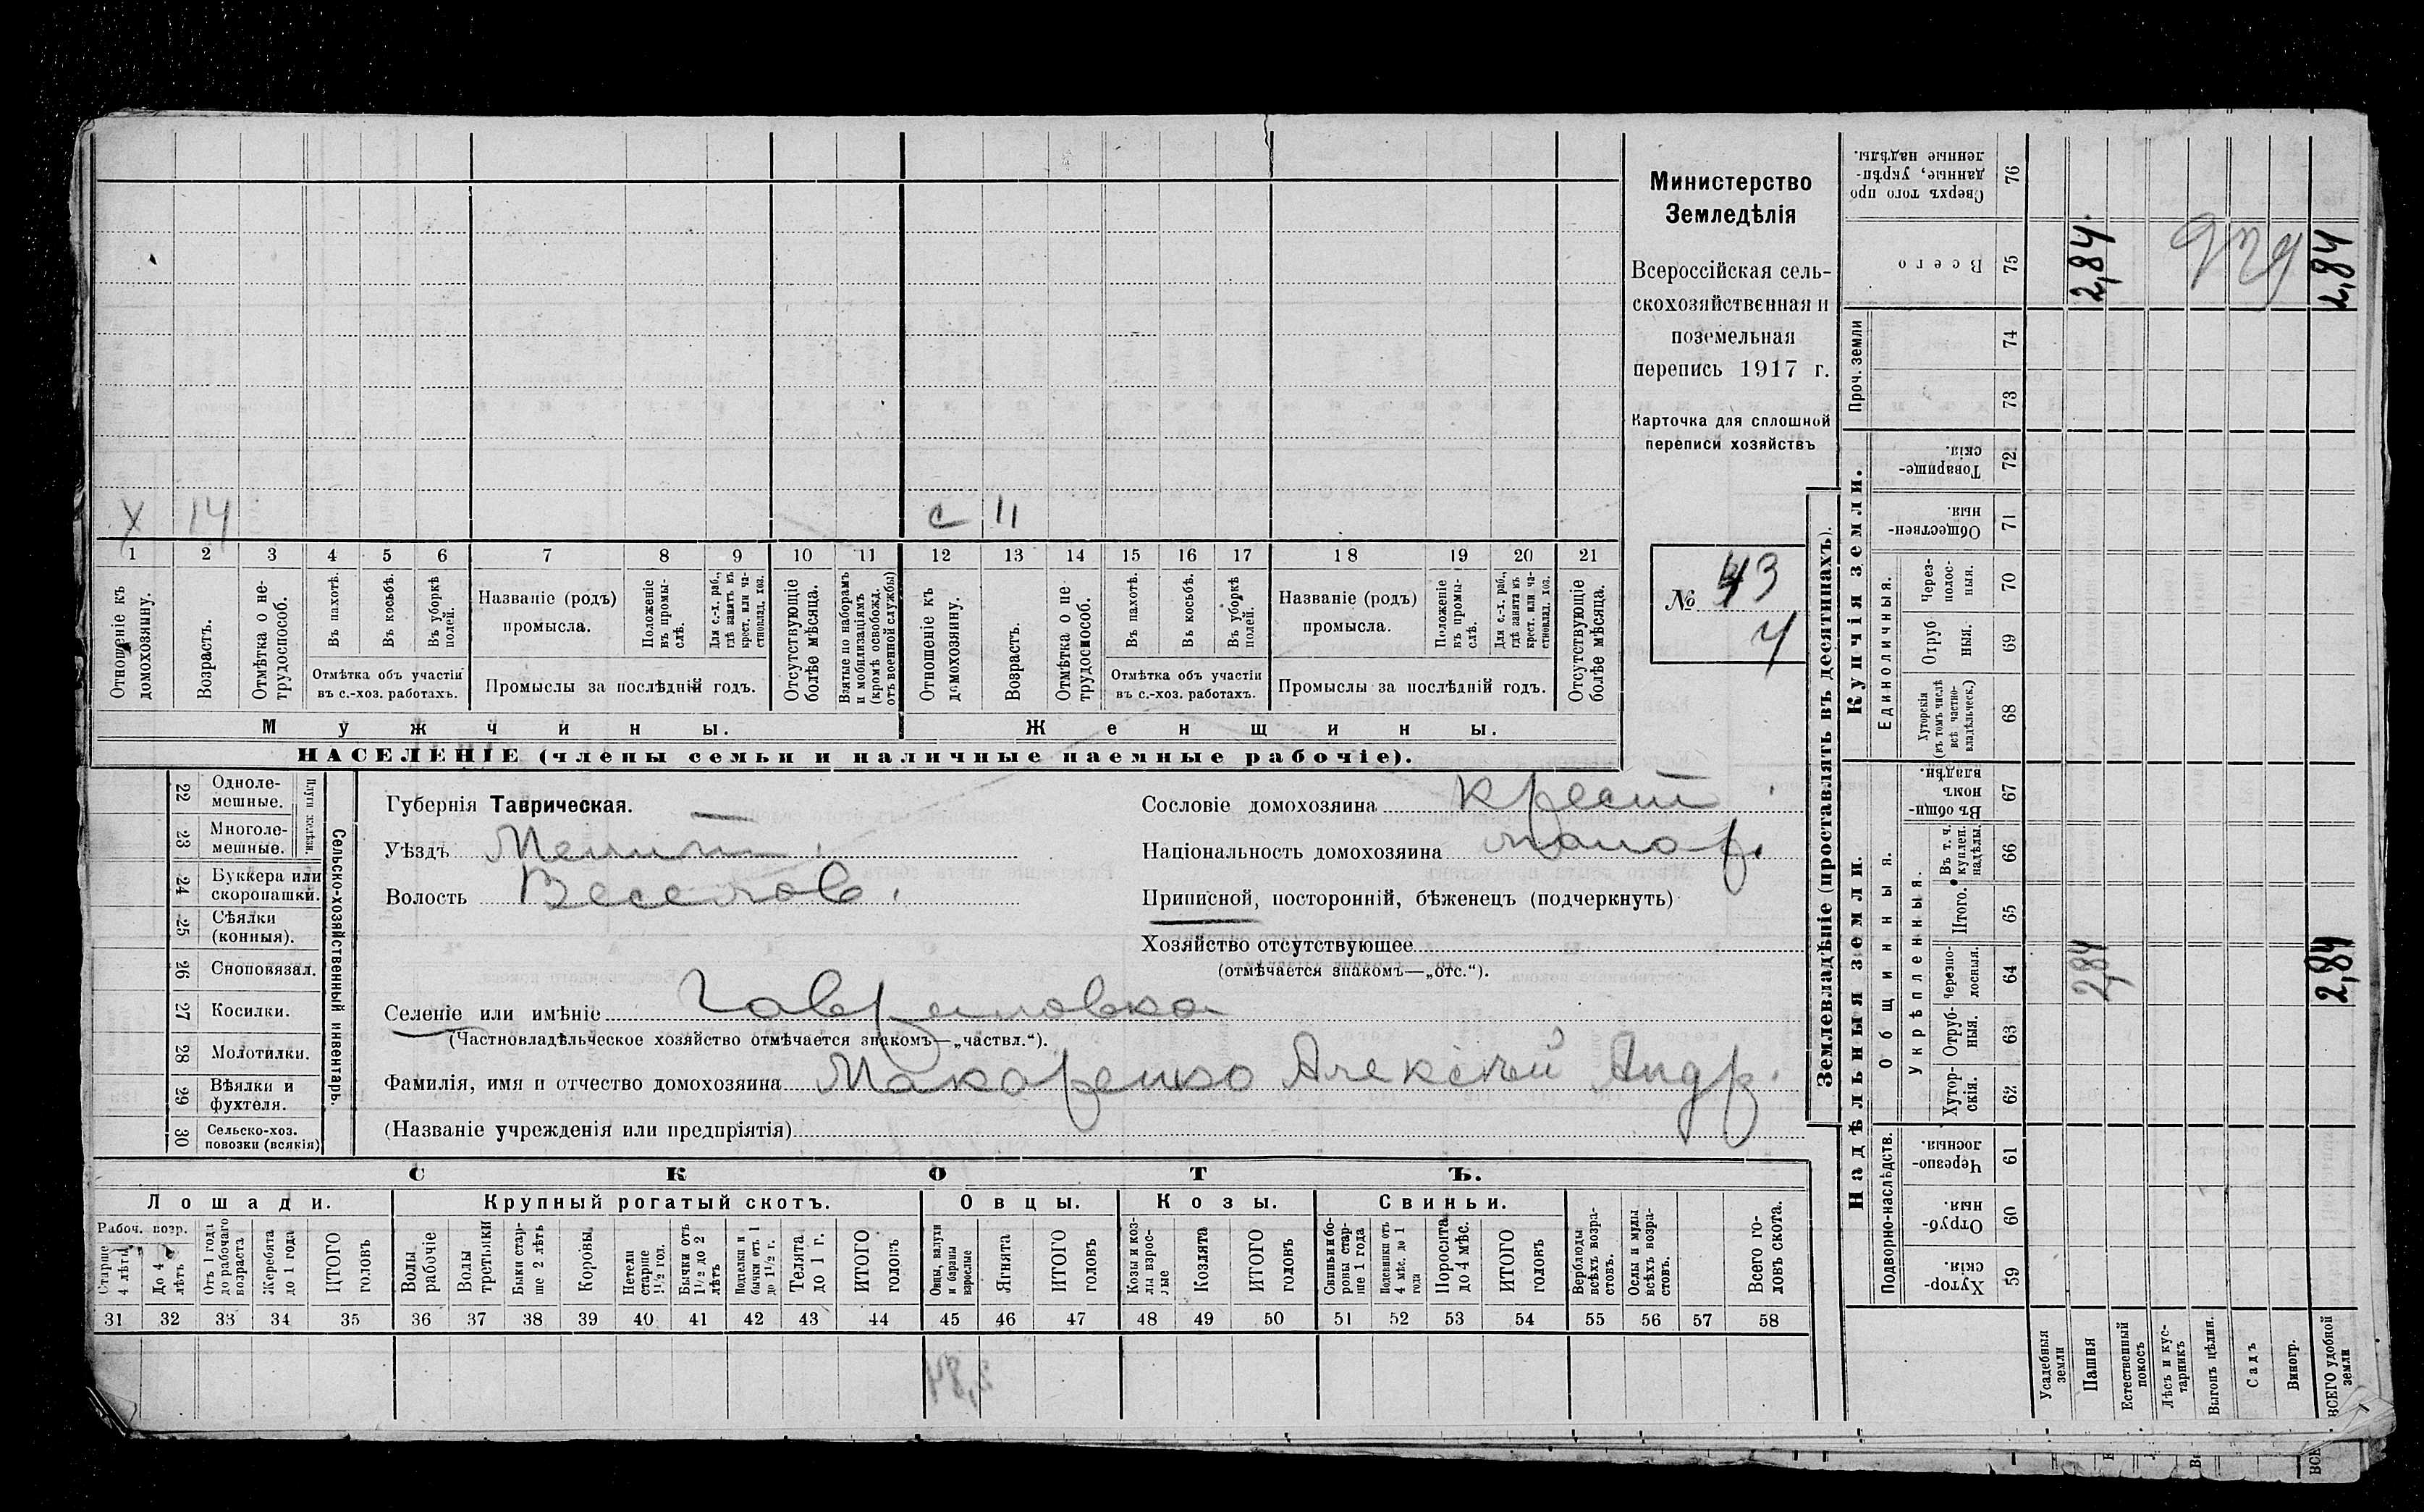 Х 14 с 11
1 2 3 4 5 6 7 8 9 10 11 12 13 14 15 16 17 18 19 20 21
Отношеніе къ домохозяину.
Возрастъ.
Отмѣтка о не-
трудоспособ.
Въ пахотѣ.
Въ косьбѣ.
Въ уборкѣ полей.
Отмѣтка объ участіи
въ с.-хоз. работахъ.
Названіе (родъ)
промысла.
Положеніе
въ промы-
слѣ.
Для с.-х. раб.,
гдѣ занятъ въ
крест. или ча-
стновлад. хоз.
Промыслы за послѣдній годъ.
Отсутствующіе
болѣе мѣсяца.
Взятые по наборамъ
и мобилизаціямъ
(кромѣ освобожд.
отъ военной службы)
Отношеніе къ
домохозяину.
Возрастъ.
Отмѣтка о не
трудоспособ.
Въ пахотѣ.
Въ косьбѣ.
Въ уборкѣ
полей.
Отмѣтка объ участіи
въ с.-хоз. работахъ.
Названіе (родъ)
промысла.
Положеніе
въ промы-
слѣ.
Для с.-х. раб.,
гдѣ занята въ
крест. или ча-
стновлад. хоз.
Промыслы за послѣдній годъ.
Отсутствующіе
болѣе мѣсяца.
Мужчины.
Женщины.
НАСЕЛЕНІЕ (члены семьи и наличные наемные рабочіе).
Министерство
Земледѣлія
Всероссійская сель-
скохозяйственная и
поземельная
перепись 1917 г.
Карточка для сплошной
переписи хозяйствъ
№ 43
4
22 Одноле-
мешные.
23 Многоле-
мешные.
Плуги желѣзн.
24 Буккера или
скоропашки.
25 Сѣялки
(конныя).
26 Сноповязал.
27 Косилки.
28 Молотилки.
29 Вѣялки и
фухтеля.
30 Сельско-хоз.
повозки (всякія)
Сельско-хозяйственный инвентарь.
Губернія Таврическая.
Уѣздъ Мелит.
Волость Веселов.
Сословіе домохозяина крест
Національность домохозяина малор.
Приписной, посторонній, бѣженецъ (подчеркнуть)
Хозяйство отсутствующее
(отмѣчается знакомъ—„отс.“).
Селеніе или имѣніе Гавриловка
(Частновладѣльческое хозяйство отмѣчается знакомъ—„частвл.“).
Фамилія, имя и отчество домохозяина Макаренко Алексѣй Андр.
(Названіе учрежденія или предпріятія)
СКОТЪ.
Лошади. Крупный рогатый скотъ. Овцы. Козы. Свиньи.
Рабоч. возр.
Старше
4 лѣтъ
До 4
лѣтъ
Отъ 1 года
до рабочаго
возраста
Жеребята
до 1 года
ИТОГО
головъ
Волы
рабочіе
Волы
третьяки
Быки стар-
ше 2 лѣтъ
Коровы
Нетели
старше
1½ год.
Бычки отъ
1½ до 2
лѣтъ
Подтелки и
бычки отъ 1
до 1½ г.
Телята
до 1 г.
ИТОГО
головъ
Овцы, валухи
и бараны
взрослые
Ягнята
ИТОГО
головъ
Козы и коз-
лы взрос-
лые
Козлята
ИТОГО
головъ
Свиньи и бо-
ровы стар-
ше 1 года
Подсвинки отъ
4 мѣс. до 1
года
Поросята
до 4 мѣс.
ИТОГО
головъ
Верблюды
всѣхъ возра-
стовъ.
Ослы и мулы
всѣхъ возра-
стовъ.
Всего го-
ловъ скота.
31 32 33 34 35 36 37 38 39 40 41 42 43 44 45 46 47 48 49 50 51 52 53 54 55 56 57 58
Землевладѣніе (проставлять въ десятинахъ).
Надѣльныя земли.
Подворно-наслѣдств.
Хутор-
скія. 59
Отруб-
ныя. 60
Черезпо-
лосныя. 61
Общинныя.
Укрѣпленныя.
Хутор-
скія. 62
Отруб-
ныя. 63
Черезпо-
лосныя. 64 2,84 2,84
Итого. 65
Въ т. ч.
куплен.
надѣлы. 66
Въ общин-
номъ
владѣн. 67
Купчія земли.
Единоличныя.
Хуторскія
(въ томъ числѣ
всѣ частно-
владѣльческ.) 68
Отруб
ныя. 69
Через-
полос-
ныя. 70
Обществен-
ныя. 71
Товарище-
скія. 72
Проч. земли
73
74
Всего 75 2,84 2,84
Сверхъ того про
данные, укрѣп-
ленные надѣлы. 76
Усадебныя
земли
Пашня
Естественный
покосъ
Лѣсъ и кус-
тарникъ
Выгонъ цѣлин.
Садъ
Виногр.
ВСЕГО удобной
земли